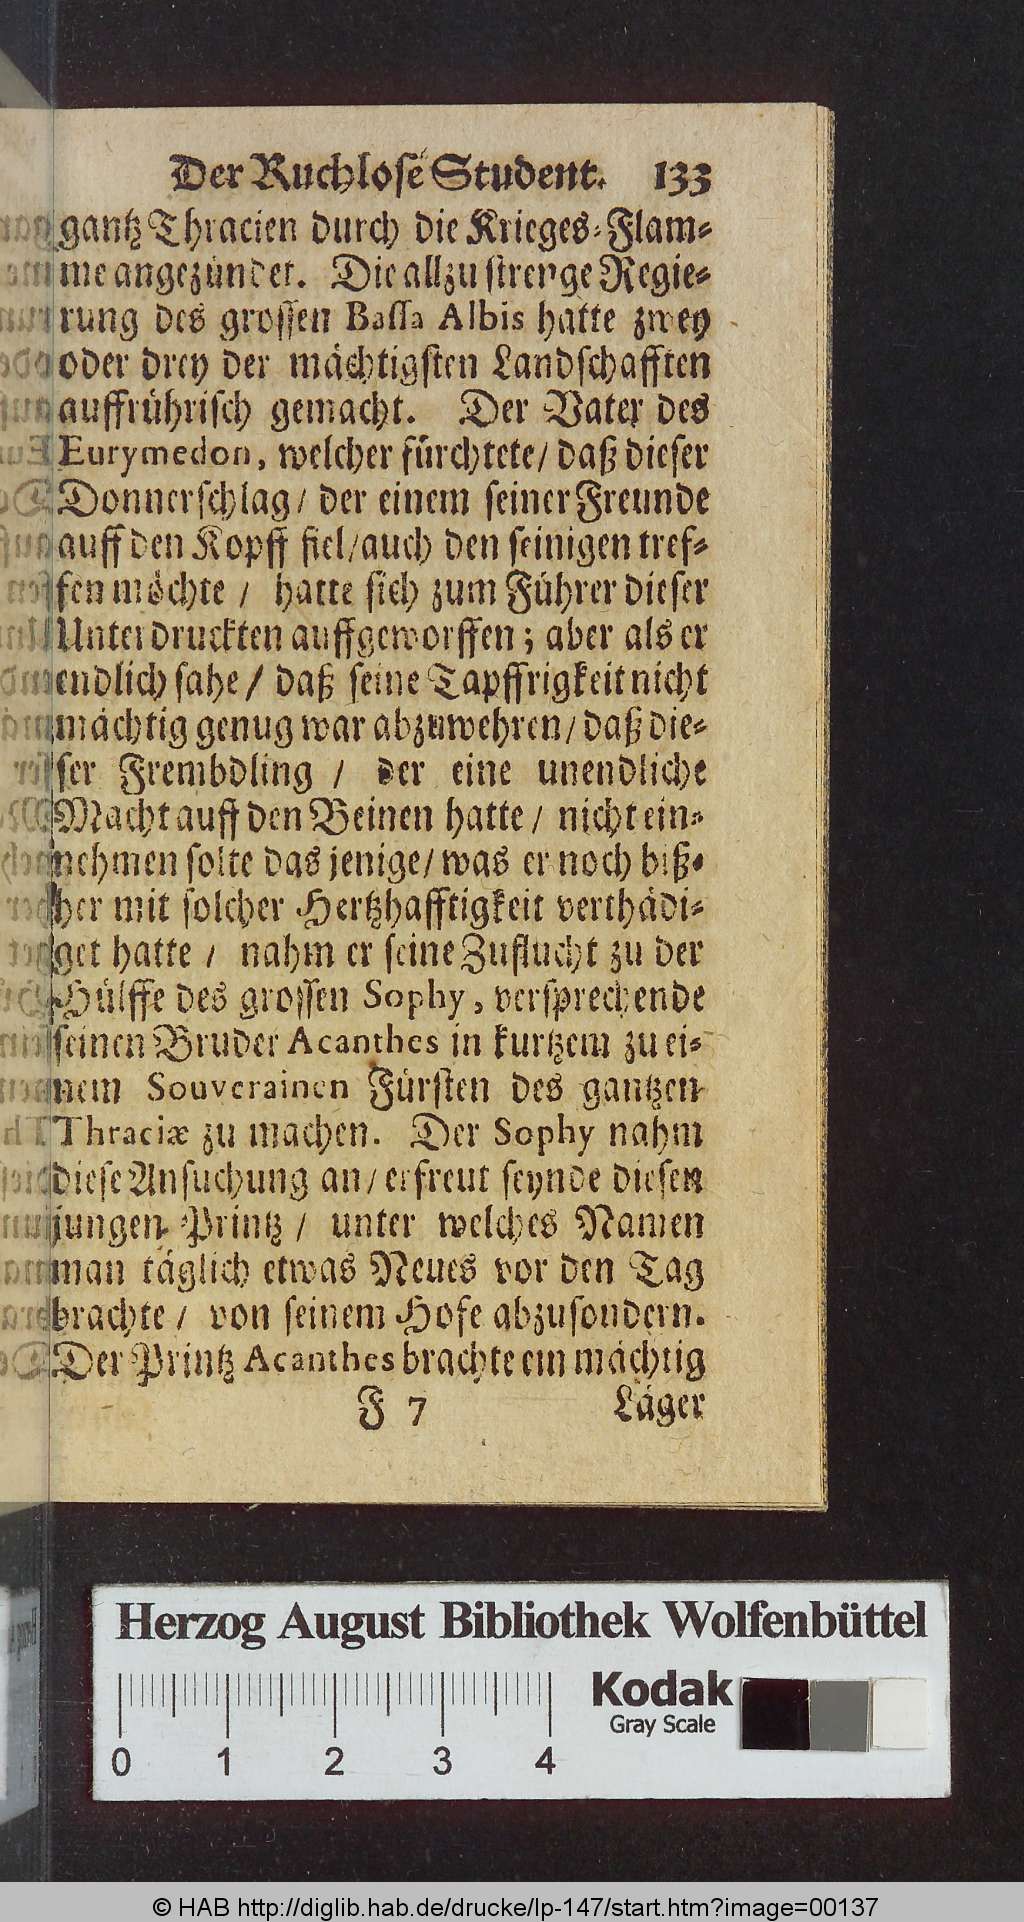 Der Ruchlose Student. 133
gantz Thracien durch die Krieges-Flam-
me angezündet. Die allzu strenge Regie-
rung des grossen Bassa Albis hatte zwey
oder drey der mächtigsten Landschafften
auffrührisch gemacht. Der Vater des
Eurymedon, welcher fürchtete/ daß dieser
Donnerschlag/ der einem seiner Freunde
auff den Kopff fiel/ auch den seinigen tref-
fen möchte / hatte sich zum Führer dieser
Unterdruckten auffgeworffen; aber als er
endlich sahe/ daß seine Tapffrigkeit nicht
mächtig genug war abzuwehren/ daß die-
ser Frembdling / der eine unendliche
Macht auff den Beinen hatte/ nicht ein-
nehmen solte das jenige/ was er noch biß-
her mit solcher Hertzhafftigkeit verthädi-
get hatte / nahm er seine Zuflucht zu der
Hülffe des grossen Sophy, versprechende
seinen Bruder Acanthes in kurtzem zu ei-
nem Souverainen Fürsten des gantzen
Thraciæ zu machen. Der Sophy nahm
diese Ansuchung an/ erfreut seynde diesen
jungen Printz / unter welches Namen
man täglich etwas Neues vor den Tag
brachte/ von seinem Hofe abzusondern.
Der Printz Acanthes brachte ein mächtig
F 7 Läger
Herzog August Bibliothek Wolfenbüttel
Kodak
Gray Scale
0 1 2 3 4
© HAB http://diglib.hab.de/drucke/lp-147/start.htm?image=00137